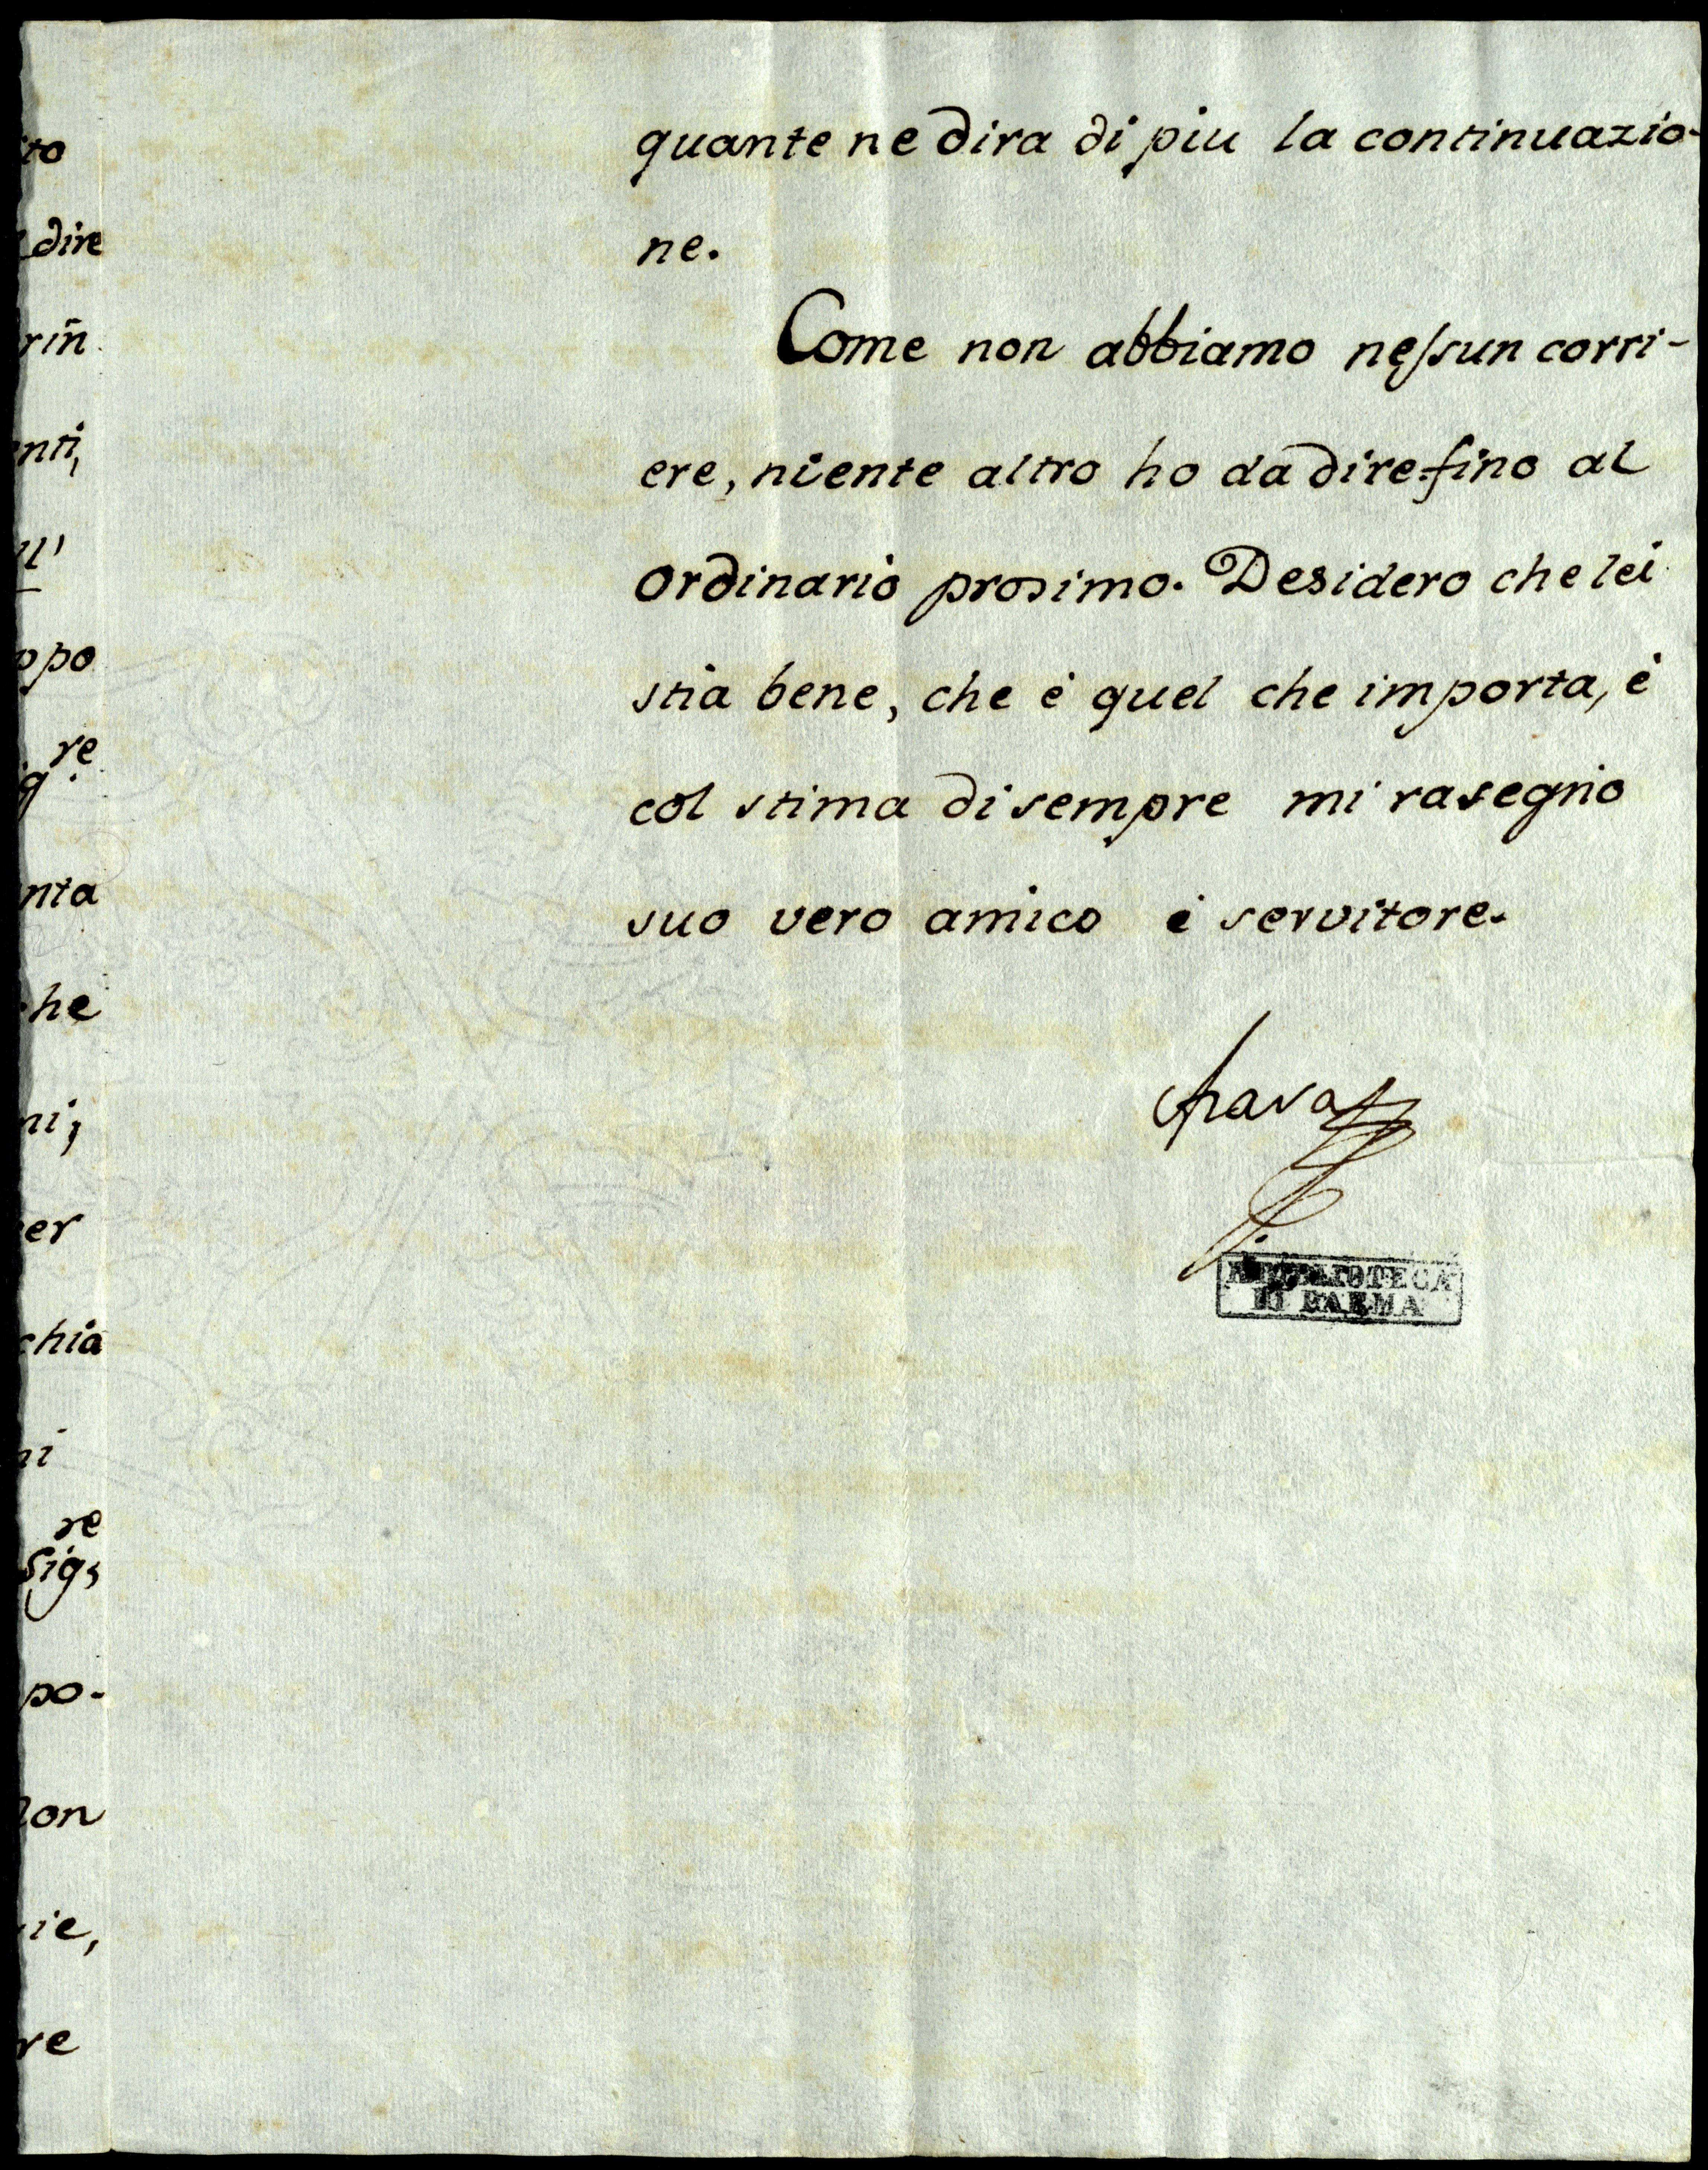 quante ne dira di piu la continuazio-
ne.
Come non abbiamo nessun corri-
ere, niente altro ho da dire fino al
ordinario prosimo. Desidero che lei
stia bene, che è quel che importa, è
col stima di sempre mi rasegnio
suo vero amico è servitore.
BIBLIOTECA
DI PARMA
to
dire
rin
nti,
ll'
ppo
re
nta
he
ni;
er
chia
ni
re
Sig
po-
on
ie,
re